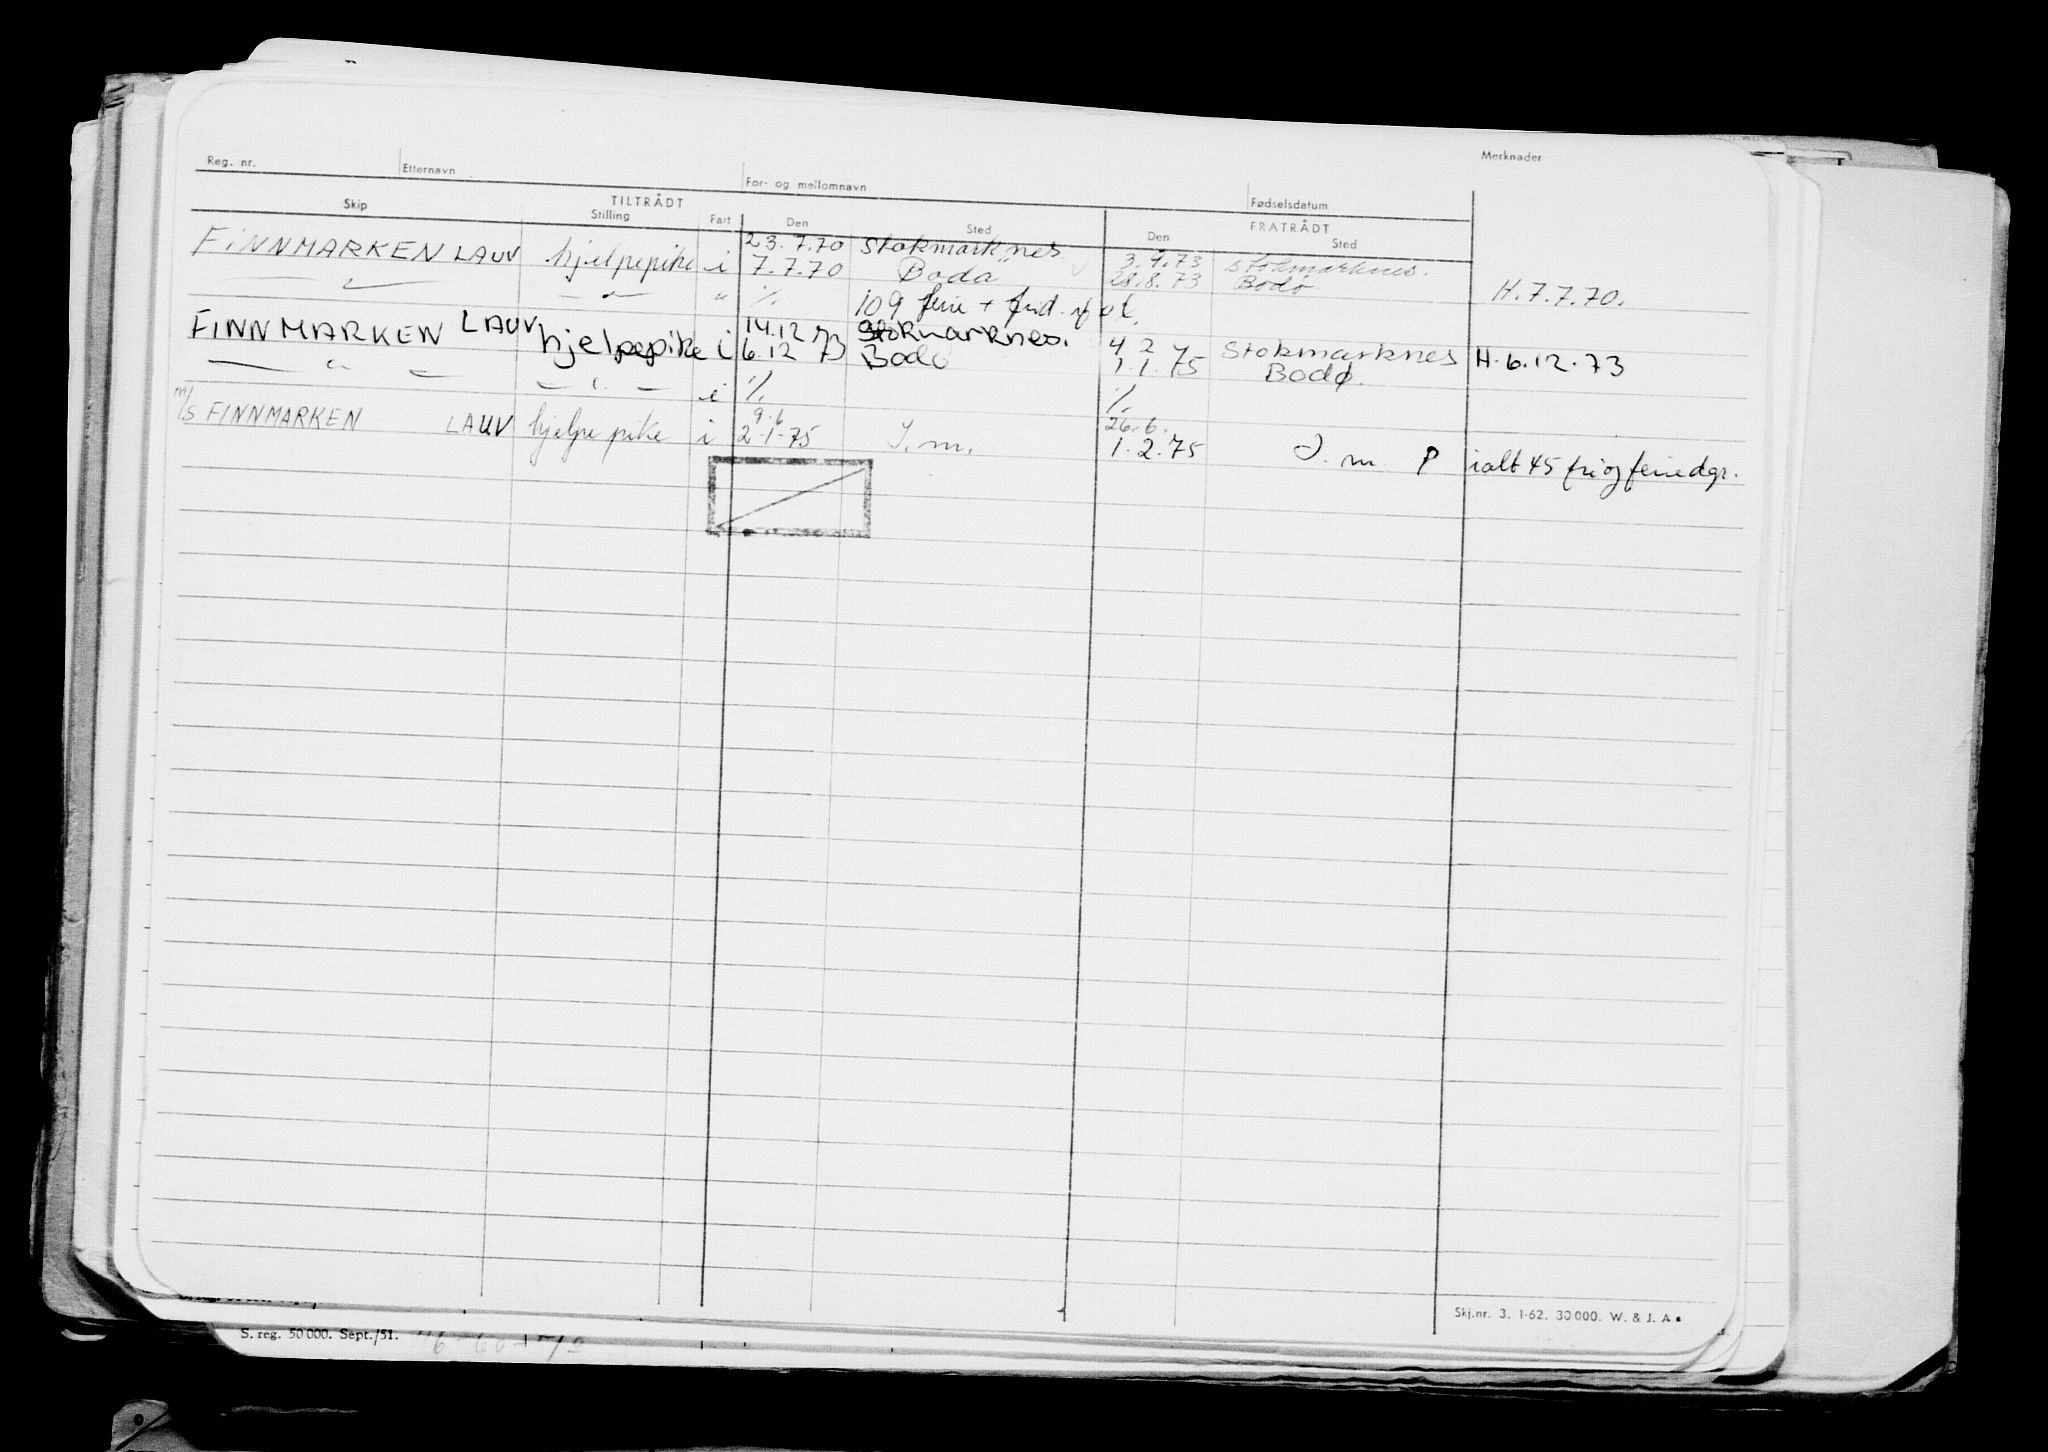 Reg. nr. Etternavn For- og mellomnavn Fødselsdatum Merknader
TILTRÅDT FRATRÅDT
Skip Stilling Fart Den Sted Den Sted
FINNMARKEN LAUV hjelpepike i 23.7.70 Stokmarknes 3.9.73 Stokmarknes.
7.7.70 Bodø 28.8.73 Bodø H.7.7.70.
— " — — " — " % 109 ferie +
FINNMARKEN LAUV hjelpepike i 14.12 73 Stokmarknes. 4 2 Stokmarknes
6.12 73 Bodø 1.1.75 Bodø. H.6.12.73
— " — — " — i % %
m/s FINNMARKEN LAUV hjelpe pike i 9.6 26.6.
2-1-75 J.m. 1.2.75 J.m. P ialt 45 fri og feriedgr.
Skj.nr. 3. 1-62. 30000. W. & J. A
S. reg. 50000. Sept./51.